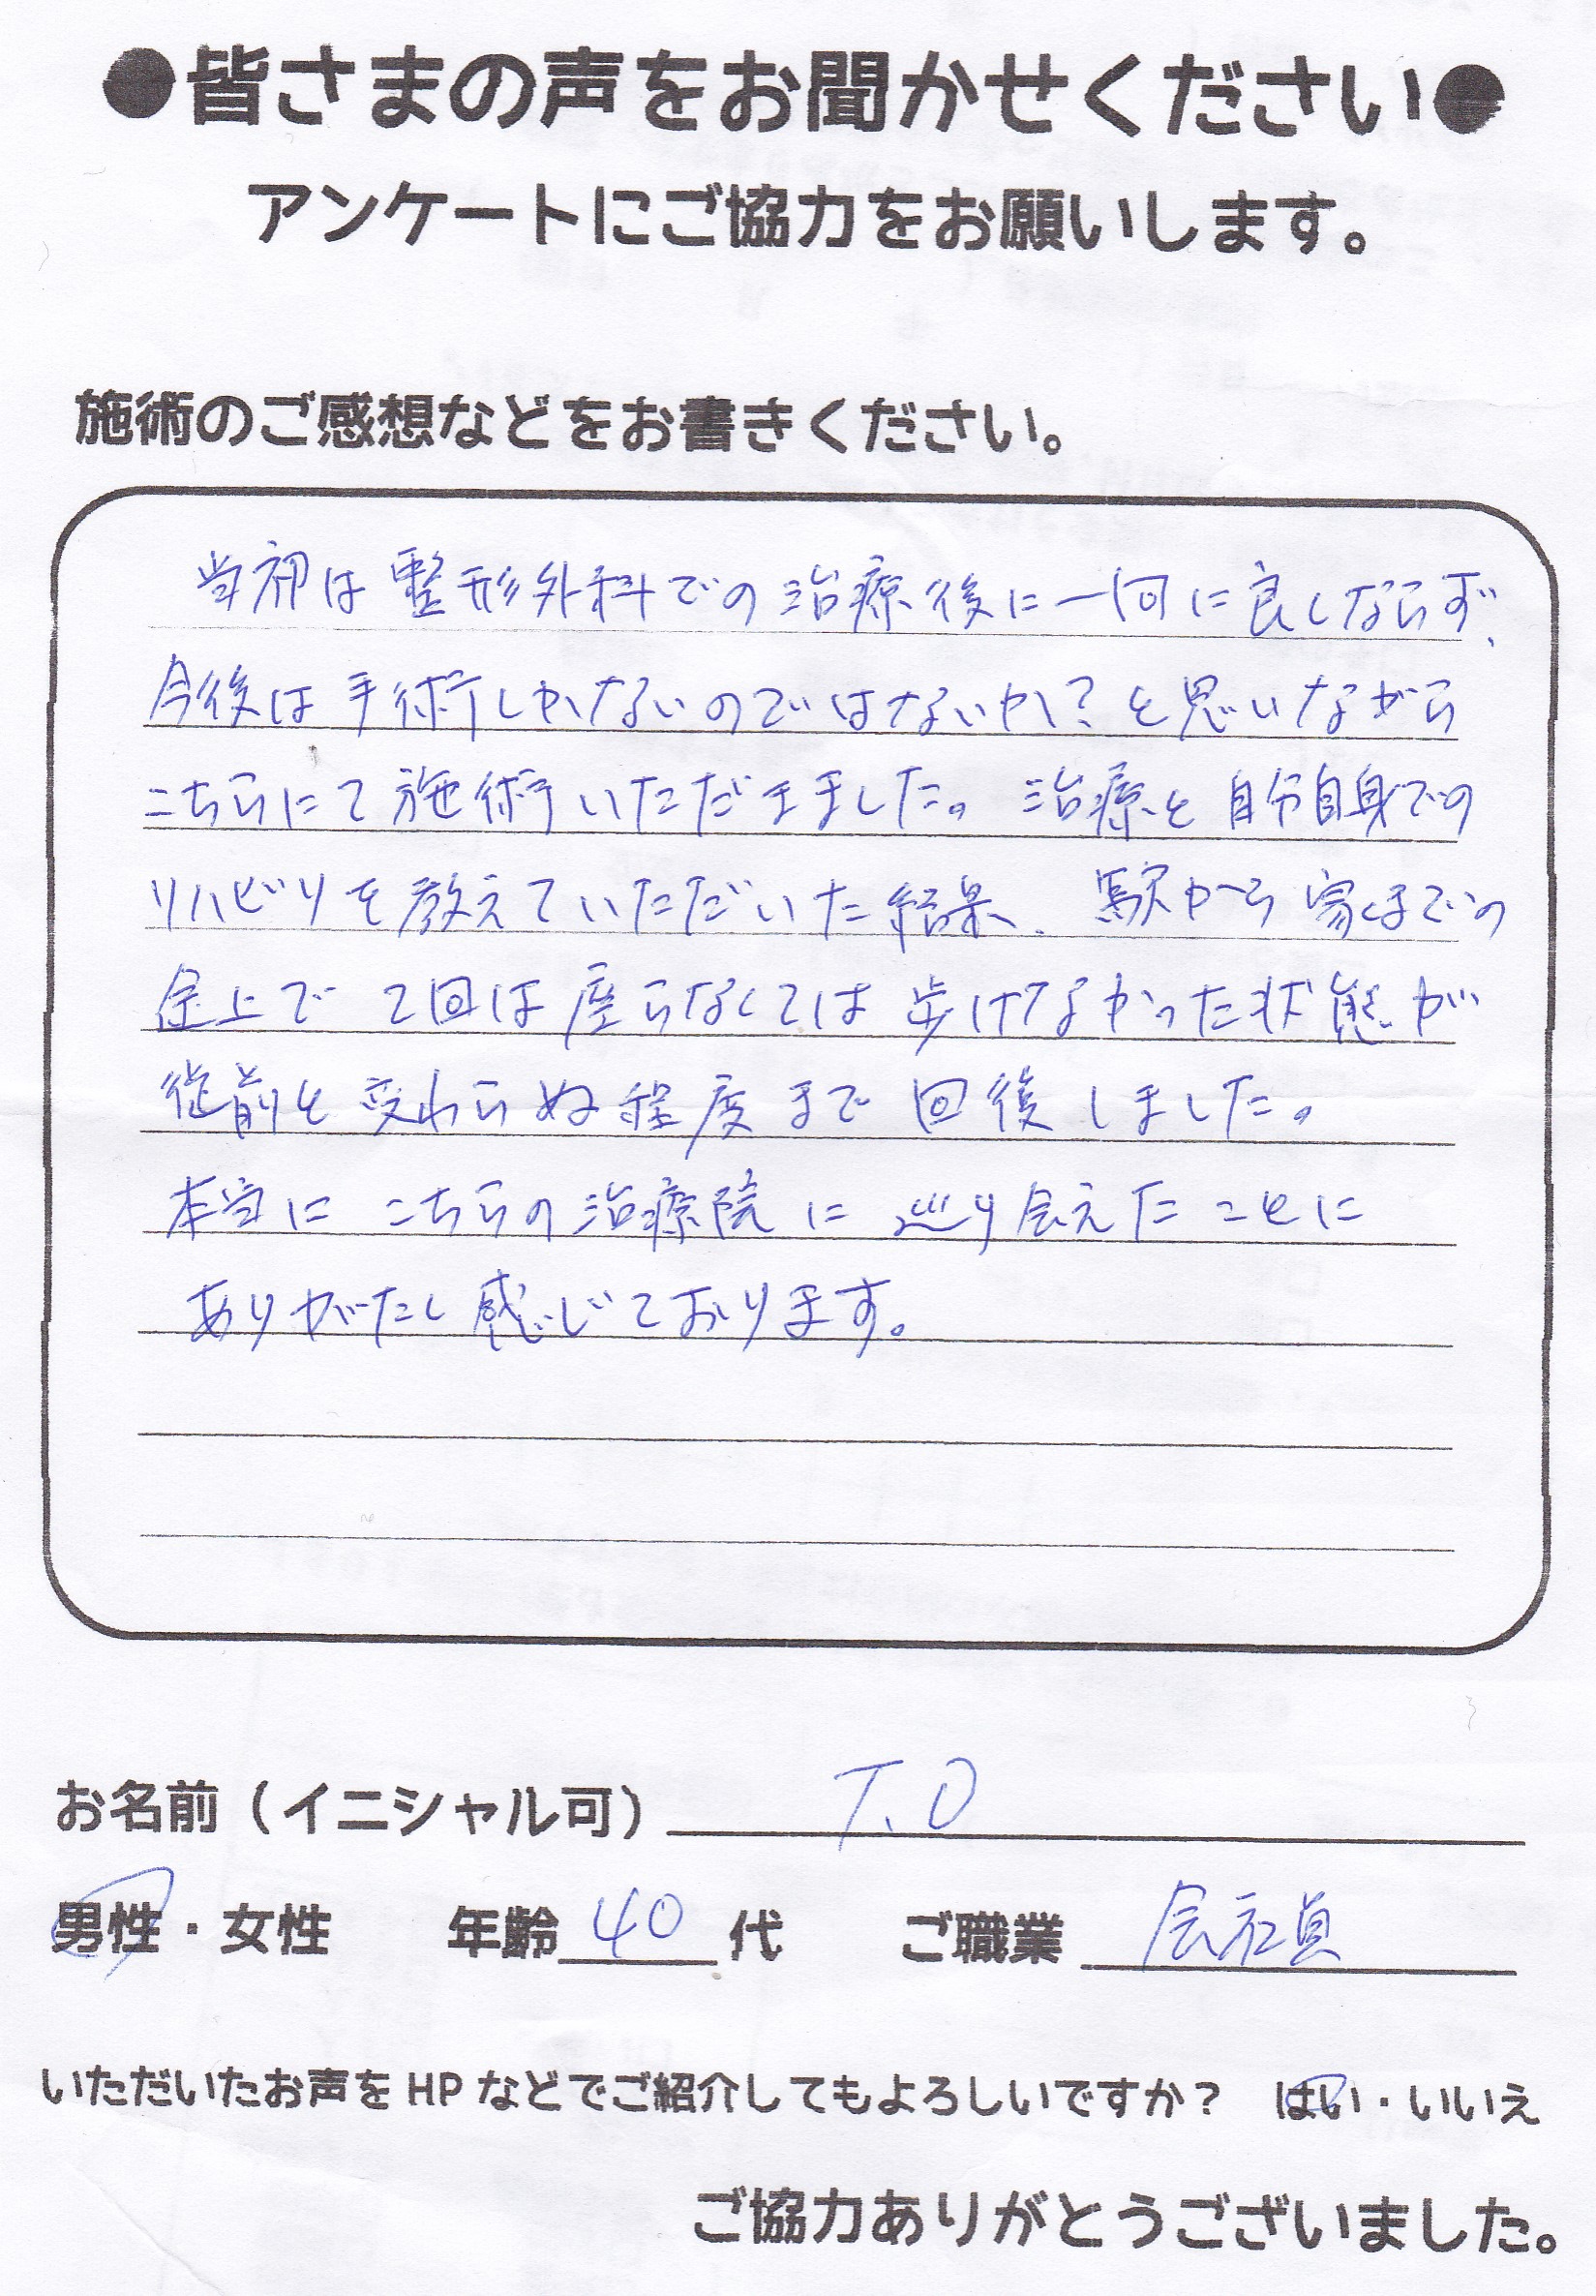 ●皆さまの声をお聞かせください●
アンケートにご協力をお願いします。
施術のご感想などをお書きください。
当初は整形外科での治療後に一向に良くならず、
今後は手術しかないのではないか？と思いながら
こちらにて施術いただきました。治療と自分自身での
リハビリを教えていただいた結果、駅から家までの
途上で2回は座らなくては歩けなかった状態が
従前と変わらぬ程度まで回復しました。
本当にこちらの治療院に巡り会えたことに
ありがたく感じております。
お名前（イニシャル可） T.O
男性・女性 年齢 40 代 ご職業 会社員
いただいたお声をHPなどでご紹介してもよろしいですか？ はい・いいえ
ご協力ありがとうございました。